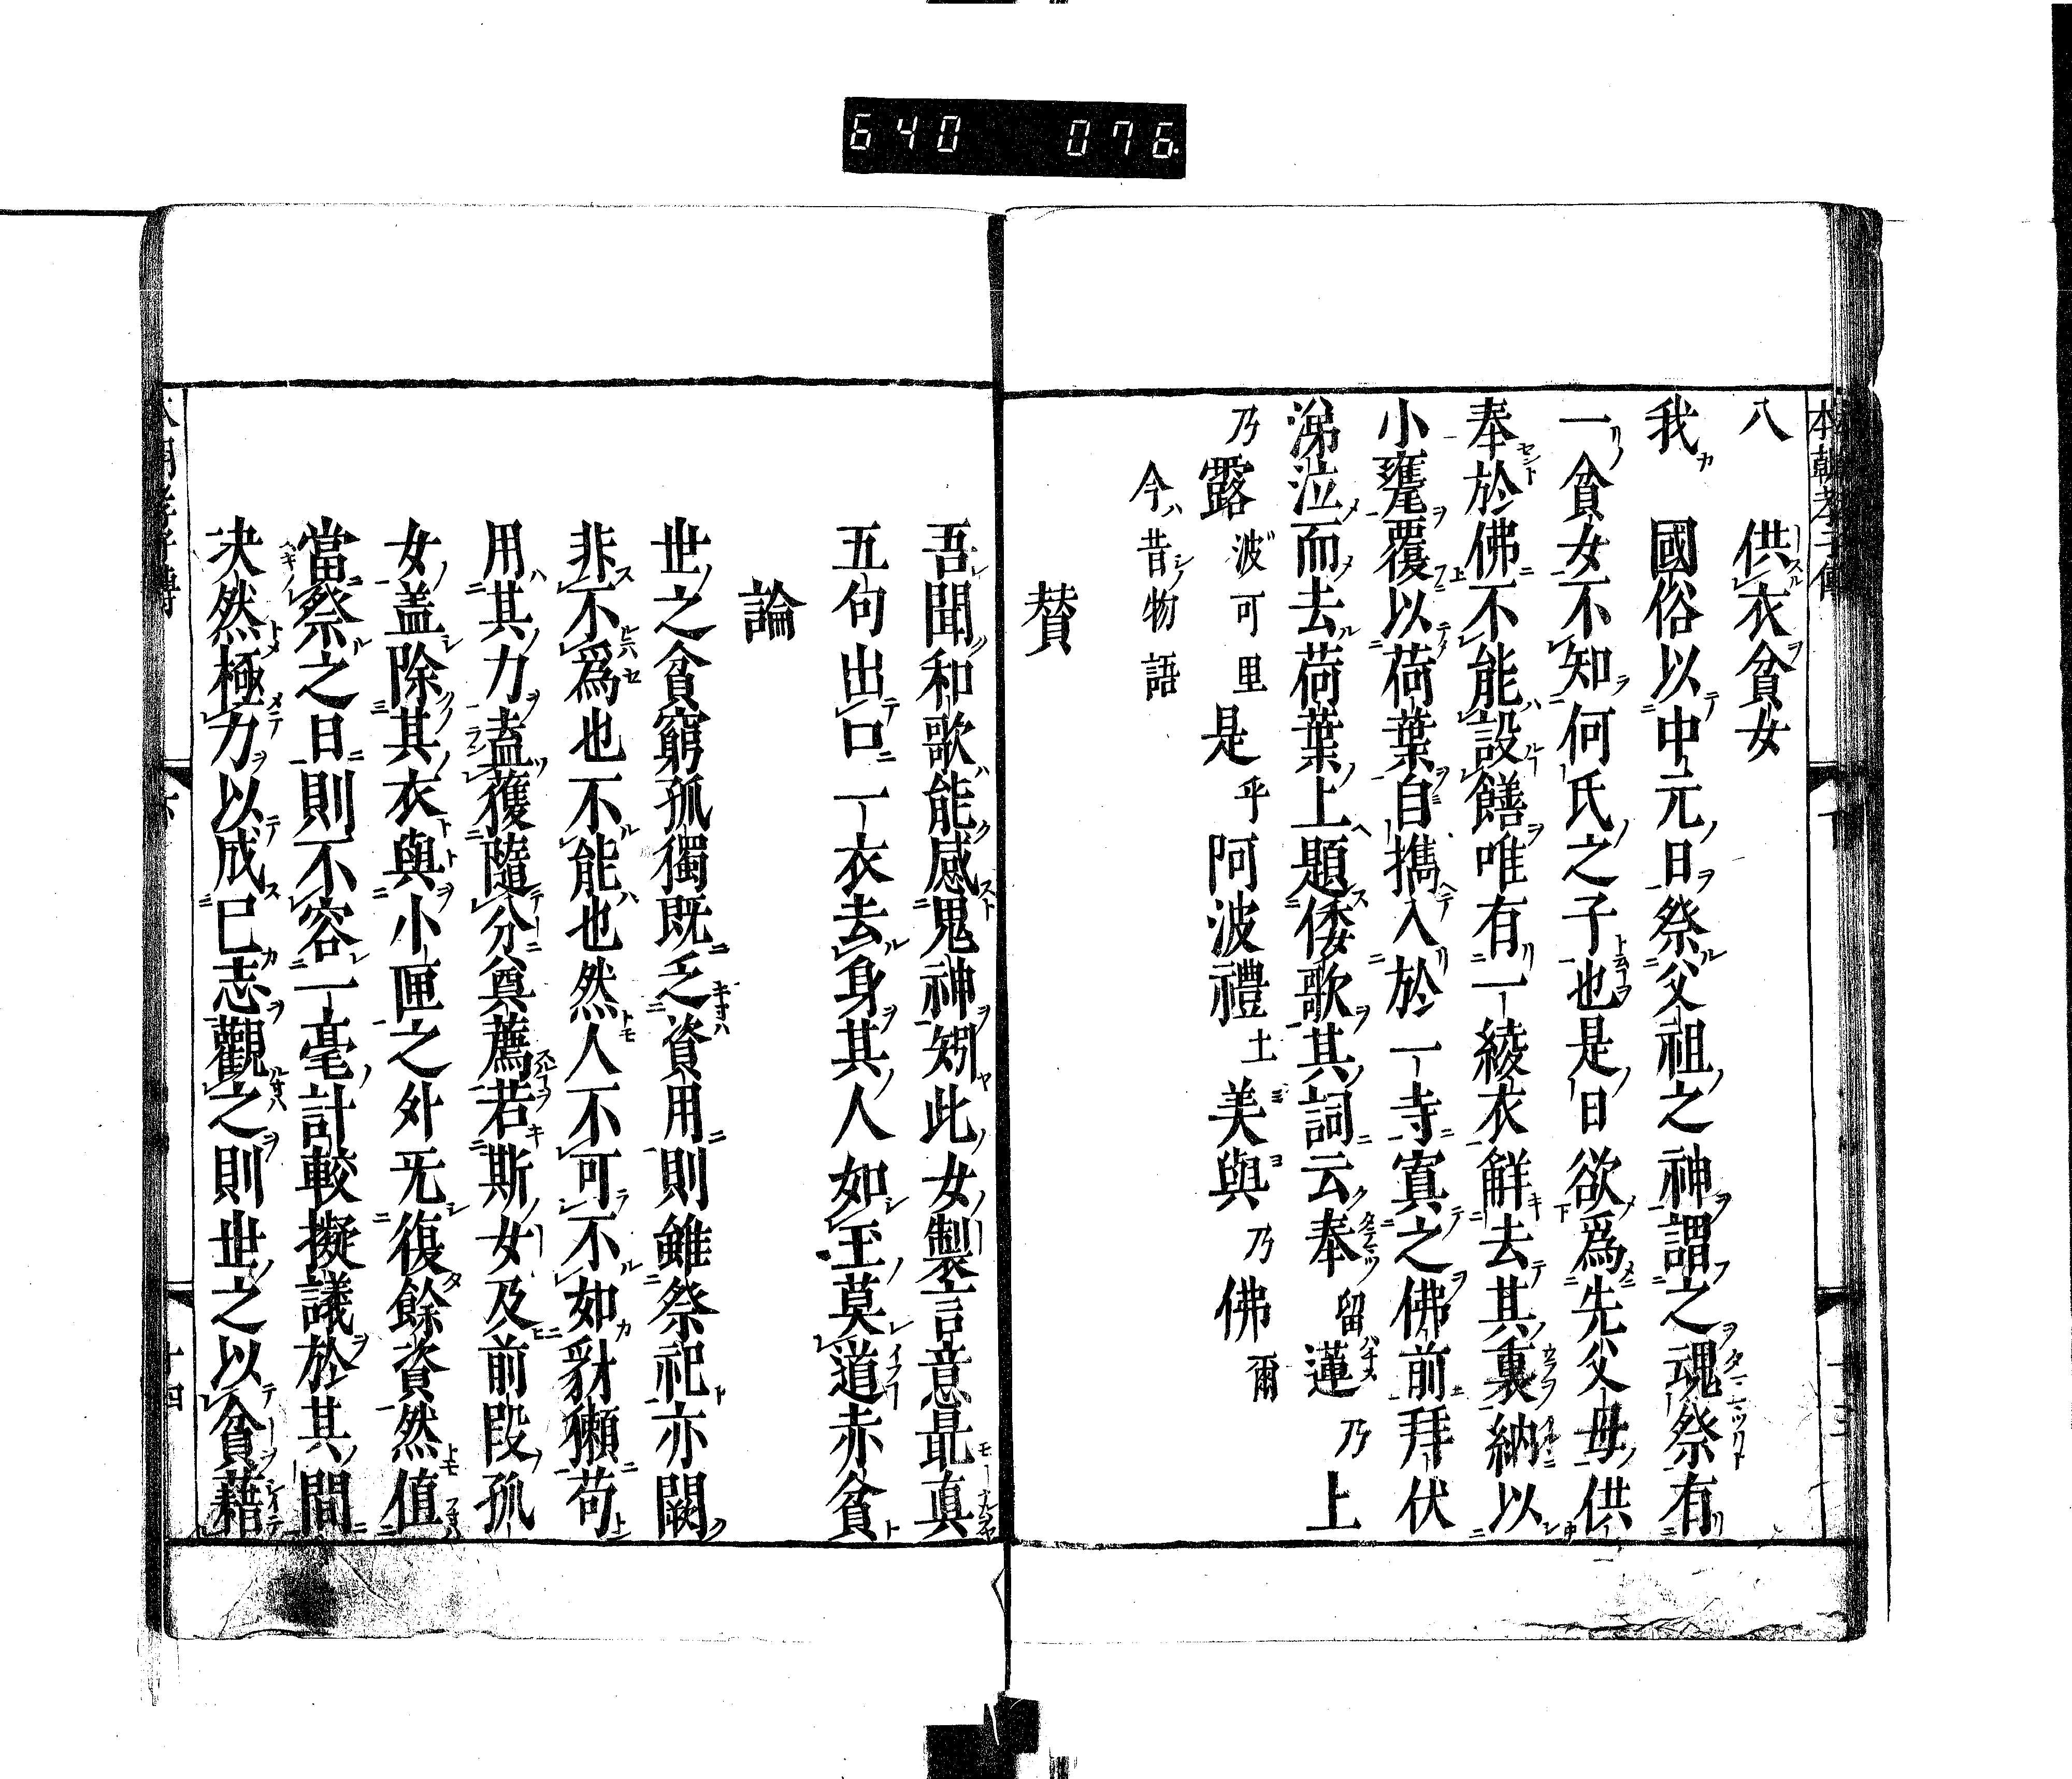 640 076
本朝孝子傳 下
八 供衣貧女
我 國俗以中元日祭父祖之神謂之魂祭有
一貧女不知何氏之子也是日欲爲先父母供
奉於佛不能設饍唯有一綾衣鮮去其裏納以
小甕覆以荷葉自擕入於一寺寘之佛前拜伏
涕泣而去荷葉上題倭歌其詞云奉留蓮乃上
乃露波可里是乎阿波禮土美與乃佛爾
今昔物語
賛
吾聞和歌能感鬼神矧此女製言意最真
五句出口一衣去身其人如玉莫道赤貧
論
世之貧窮孤獨既乏資用則雖祭祀亦闕
非不爲也不能也然人不可不如豺獺苟
用其力盍獲隨分奠薦若斯女及前段孤
女盖除其衣與小匣之外旡復餘資然值
當祭之日則不容一毫計較擬議於其間
决然極力以成已志觀之則世之以貧藉